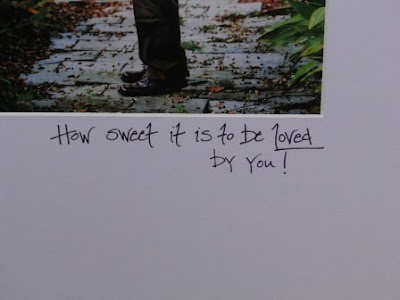 How sweet it is to be loved
by you!